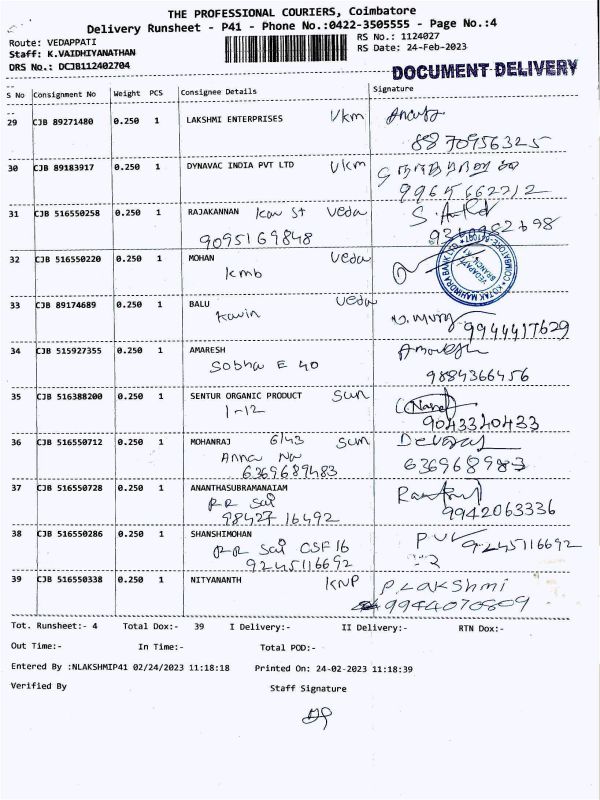 THE PROFESSIONAL COURIERS, Coimbatore
Delivery Runsheet - P41 - Phone No.:0422-3505555 - Page No.:4
Route: VEDAPPATI
RS No.: 1124027
Staff: K.VAIDHIYANATHAN
RS Date: 24-Feb-2023
DRS No.: DCJB112402704
DOCUMENT DELIVERY
S No Consignment No Weight PCS Consignee Details Signature
29 CJB 89271480 0.250 1 LAKSHMI ENTERPRISES Vkm
8870956325
30 CJB 89183917 0.250 1 DYNAVAC INDIA PVT LTD Vkm
9965662212
31 CJB 516550258 0.250 1 RAJAKANNAN Kav St Veda
9095169848
32 CJB 516550220 0.250 1 MOHAN Veda
Kmb
KOTAK MAHINDRA BANK LTD. COIMBATORE-641007
VEDAPATTI BRANCH
33 CJB 89174689 0.250 1 BALU Veda
Kavin
9944417629
34 CJB 515927355 0.250 1 AMARESH Amaresh
Sobha E 40
9884366456
35 CJB 516388200 0.250 1 SENTUR ORGANIC PRODUCT Sun
1-12
9043340433
36 CJB 516550712 0.250 1 MOHANRAJ 6/43 Sun Devaraj
Anna Na
6369689483 636968983
37 CJB 516550728 0.250 1 ANANTHASUBRAMANAIAM
RR Sai
98427 16492 9942063336
38 CJB 516550286 0.250 1 SHANSHIMOHAN
RR Sai CSF 16 9245116692
9245116692
39 CJB 516550338 0.250 1 NITYANANTH KNP P. LAKSHMI
9944070809
Tot. Runsheet:- 4 Total Dox:- 39 I Delivery:- II Delivery:- RTN Dox:-
Out Time:- In Time:- Total POD:-
Entered By :NLAKSHMIP41 02/24/2023 11:18:18 Printed On: 24-02-2023 11:18:39
Verified By Staff Signature